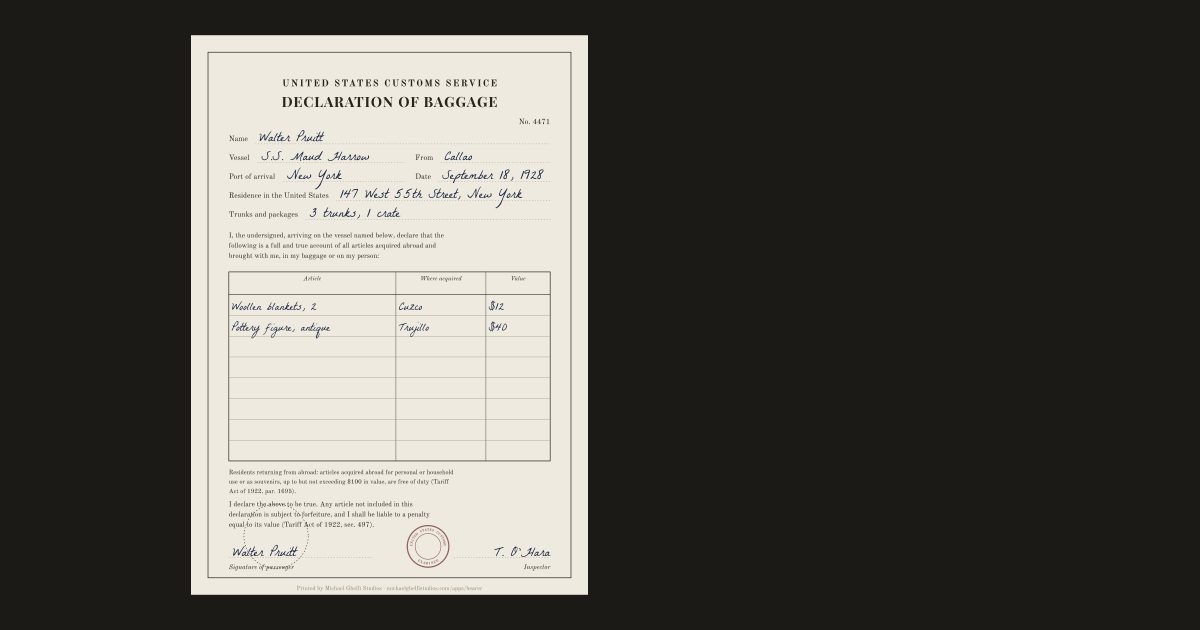 UNITED STATES CUSTOMS SERVICE
DECLARATION OF BAGGAGE
No. 4471
Name Walter Pruitt
Vessel S.S. Maud Harrow From Callao
Port of arrival New York Date September 18, 1928
Residence in the United States 147 West 55th Street, New York
Trunks and packages 3 trunks, 1 crate
I, the undersigned, arriving on the vessel named below, declare that the
following is a full and true account of all articles acquired abroad and
brought with me, in my baggage or on my person:
Article Where acquired Value
Woollen blankets, 2 Cuzco $12
Pottery figure, antique Trujillo $40
Residents returning from abroad: articles acquired abroad for personal or household
use or as souvenirs, up to but not exceeding $100 in value, are free of duty (Tariff
Act of 1922, par. 1695).
I declare the above to be true. Any article not included in this
declaration is subject to forfeiture, and I shall be liable to a penalty
equal to its value (Tariff Act of 1922, sec. 497).
UNITED STATES CUSTOMS
EXAMINED
Walter Pruitt T. O'Hara
Signature of passenger Inspector
Printed by Michael Ghelfi Studios · michaelghelfistudios.com/apps/bearer